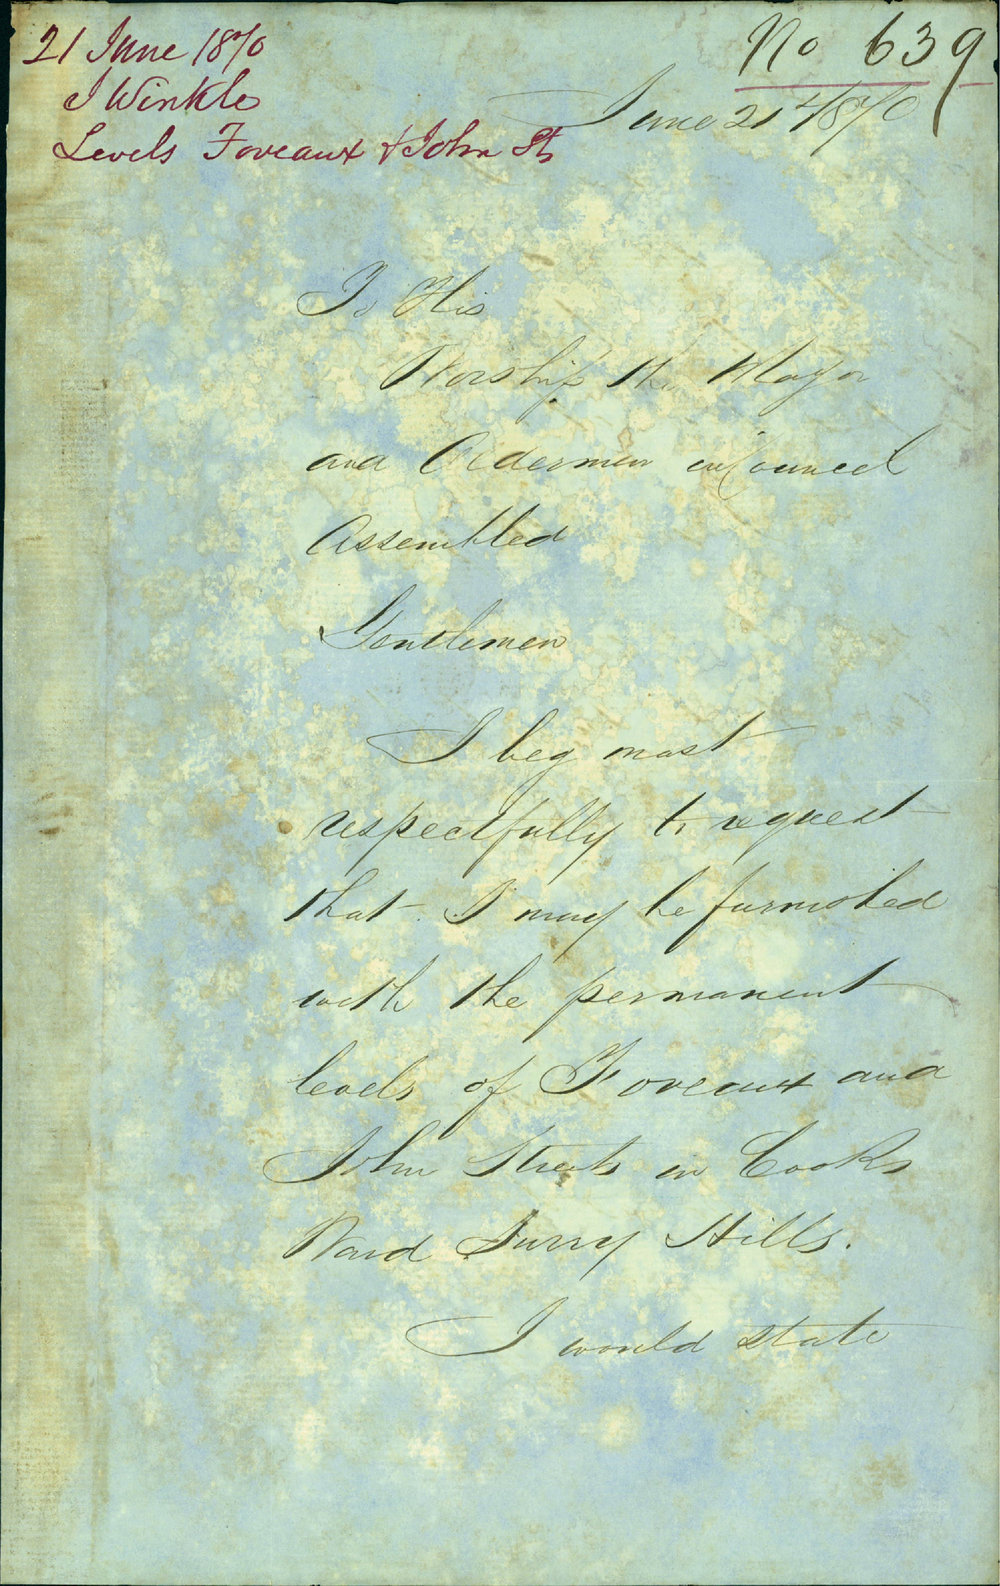 21 June 1870
J Winkle
Levels Foveaux & John Sts
No 639
June 21st/1870
To His
Worship the Mayor
and Aldermen in Council
Assembled
Gentlemen
I beg most
respectfully to request
that I may be furnished
with the permanent
levels of Foveaux and
John Streets in Cooks
Ward Surry Hills.
I would state